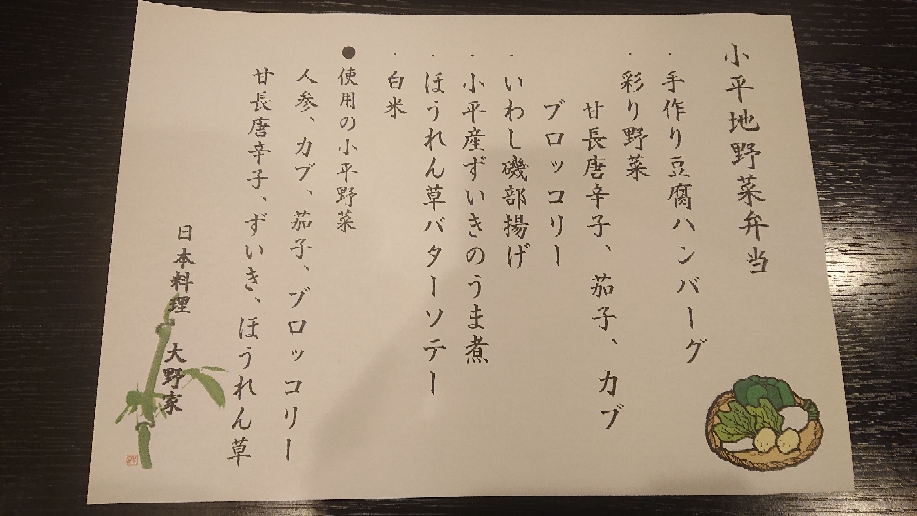 小平地野菜弁当
・手作り豆腐ハンバーグ
・彩り野菜
甘長唐辛子、茄子、カブ
ブロッコリー
・いわし磯部揚げ
・小平産ずいきのうま煮
・ほうれん草バターソテー
・白米
●使用の小平野菜
人参、カブ、茄子、ブロッコリー
甘長唐辛子、ずいき、ほうれん草
日本料理 大野家